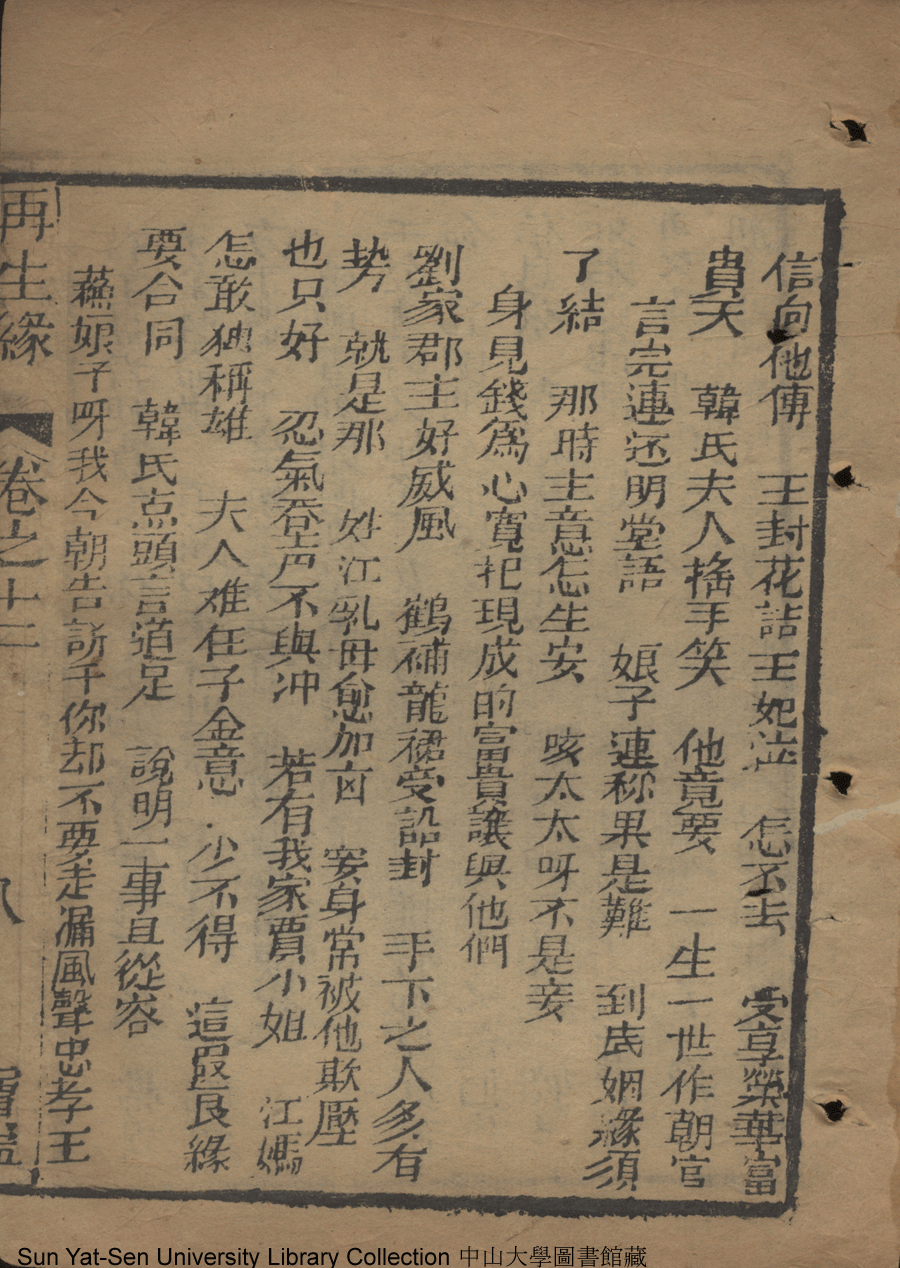 信向他傳　王封花誥王妃​　怎不去　受享榮華富
貴天　韓氏夫人搖手笑　他竟要　一生一世作朝官
言完連还明堂語　娘子連称果是難　到底姻緣須
了結　那時主意怎生安　咳太太呀不是妾
身見錢為心寬把現成的富貴讓與他們
劉家郡主好威風　鶴補龍裙受誥封　手下之人多有
势　就是那　姓江乳毋愈加​　妾身常被他欺壓
也只好　忍氣吞声不與冲　若有我家賈小姐　江媽
怎敢独稱雄　夫人难任子金意　少不得　這叚良緣
要合同　韓氏点頭言道足　說明一事且從容
蘓娘子呀我今朝告訴于你却不要走漏風聲忠孝王
再生緣　卷之十二　八
Sun Yat-Sen University Library Collection 中山大學圖書館藏